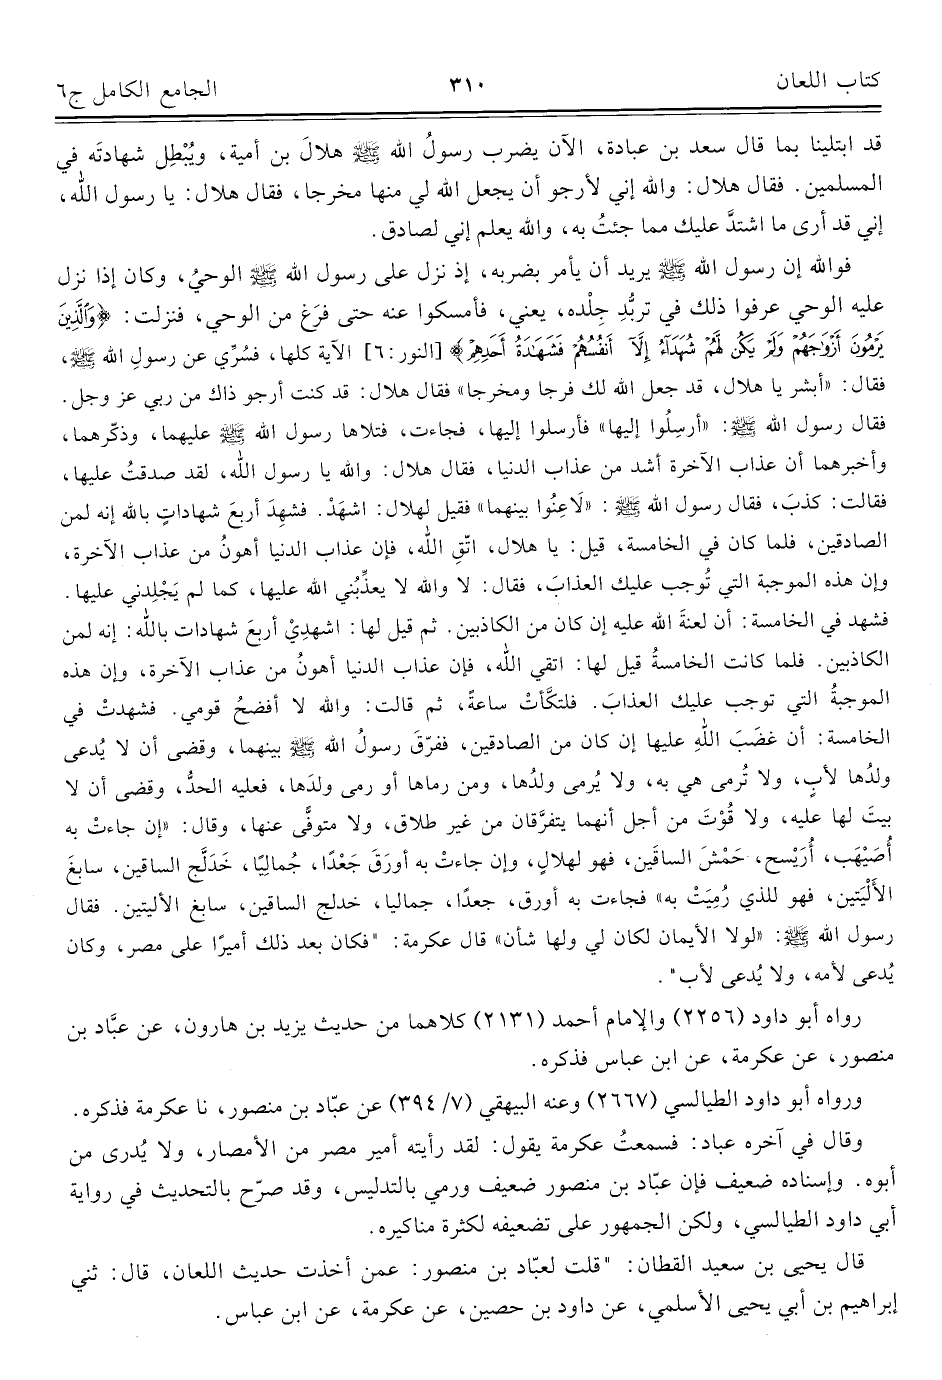 كتاب اللعان ٣١٠ الجامع الكامل ج٦
قد ابتلينا بما قال سعد بن عبادة، الآن يضرب رسولُ الله ﷺ هلالَ بن أمية، ويُبْطِل شهادتَه في
المسلمين. فقال هلال: والله إني لأرجو أن يجعل الله لي منها مخرجا، فقال هلال: يا رسول الله،
إني قد أرى ما اشتدَّ عليك مما جئتُ به، والله يعلم إني لصادق.
فوالله إن رسول الله ﷺ يريد أن يأمر بضربه، إذ نزل على رسول الله ﷺ الوحيُ، وكان إذا نزل
عليه الوحي عرفوا ذلك في تربُّدِ جِلْده، يعني، فأمسكوا عنه حتى فرَغ من الوحي، فنزلت: ﴿وَٱلَّذِينَ
يَرۡمُونَ أَزۡوَٰجَهُمۡ وَلَمۡ يَكُن لَّهُمۡ شُهَدَآءُ إِلَّآ أَنفُسُهُمۡ فَشَهَٰدَةُ أَحَدِهِمۡ﴾ [النور: ٦] الآية كلها، فسُرِّي عن رسولِ الله ﷺ،
فقال: «أبشر يا هلال، قد جعل الله لك فرجا ومخرجا» فقال هلال: قد كنت أرجو ذاك من ربي عز وجل.
فقال رسول الله ﷺ: «أرسِلُوا إليها» فأرسلوا إليها، فجاءت، فتلاها رسول الله ﷺ عليهما، وذكّرهما،
وأخبرهما أن عذاب الآخرة أشد من عذاب الدنيا، فقال هلال: والله يا رسول الله، لقد صدقتُ عليها،
فقالت: كذبَ، فقال رسول الله ﷺ: «لَاعِنُوا بينهما» فقيل لهلال: اشهَدْ. فشهِدَ أربعَ شهاداتٍ بالله إنه لمن
الصادقين، فلما كان في الخامسة، قيل: يا هلال، اتّقِ الله، فإن عذاب الدنيا أهونُ من عذاب الآخرة،
وإن هذه الموجبة التي تُوجب عليك العذابَ، فقال: لا والله لا يعذِّبُني الله عليها، كما لم يَجْلِدني عليها.
فشهد في الخامسة: أن لعنةَ الله عليه إن كان من الكاذبين. ثم قيل لها: اشهدِيْ أربعَ شهادات بالله: إنه لمن
الكاذبين. فلما كانت الخامسةُ قيل لها: اتقي الله، فإن عذاب الدنيا أهونُ من عذاب الآخرة، وإن هذه
الموجبةُ التي توجب عليك العذابَ. فتلكَّأتْ ساعةً، ثم قالت: والله لا أفضحُ قومي. فشهدتْ في
الخامسة: أن غضَبَ اللهِ عليها إن كان من الصادقين، ففرّقَ رسولُ الله ﷺ بينهما، وقضى أن لا يُدعى
ولدُها لأبٍ، ولا تُرمى هي به، ولا يُرمى ولدُها، ومن رماها أو رمى ولدَها، فعليه الحدُّ، وقضى أن لا
بيتَ لها عليه، ولا قُوْتَ من أجل أنهما يتفرَّقان من غير طلاق، ولا متوفَّى عنها، وقال: «إن جاءتْ به
أُصَيْهَب، أُرَيْسح، حَمْشَ الساقَين، فهو لهلالٍ، وإن جاءتْ به أورَقَ جَعْدًا، جُماليًا، خَدَلَّج الساقين، سابغَ
الألْيَتين، فهو للذي رُمِيَتْ به» فجاءت به أورق، جعدًا، جماليا، خدلج الساقين، سابغ الأليتين. فقال
رسول الله ﷺ: «لولا الأيمان لكان لي ولها شأن» قال عكرمة: "فكان بعد ذلك أميرًا على مصر، وكان
يُدعى لأمه، ولا يُدعى لأب".
رواه أبو داود (٢٢٥٦) والإمام أحمد (٢١٣١) كلاهما من حديث يزيد بن هارون، عن عبَّاد بن
منصور، عن عكرمة، عن ابن عباس فذكره.
ورواه أبو داود الطيالسي (٢٦٦٧) وعنه البيهقي (٧/ ٣٩٤) عن عبّاد بن منصور، نا عكرمة فذكره.
وقال في آخره عباد: فسمعتُ عكرمة يقول: لقد رأيته أمير مصر من الأمصار، ولا يُدرى من
أبوه. وإسناده ضعيف فإن عبّاد بن منصور ضعيف ورمي بالتدليس، وقد صرّح بالتحديث في رواية
أبي داود الطيالسي، ولكن الجمهور على تضعيفه لكثرة مناكيره.
قال يحيى بن سعيد القطان: "قلت لعبّاد بن منصور: عمن أخذت حديث اللعان، قال: ثني
إبراهيم بن أبي يحيى الأسلمي، عن داود بن حصين، عن عكرمة، عن ابن عباس.